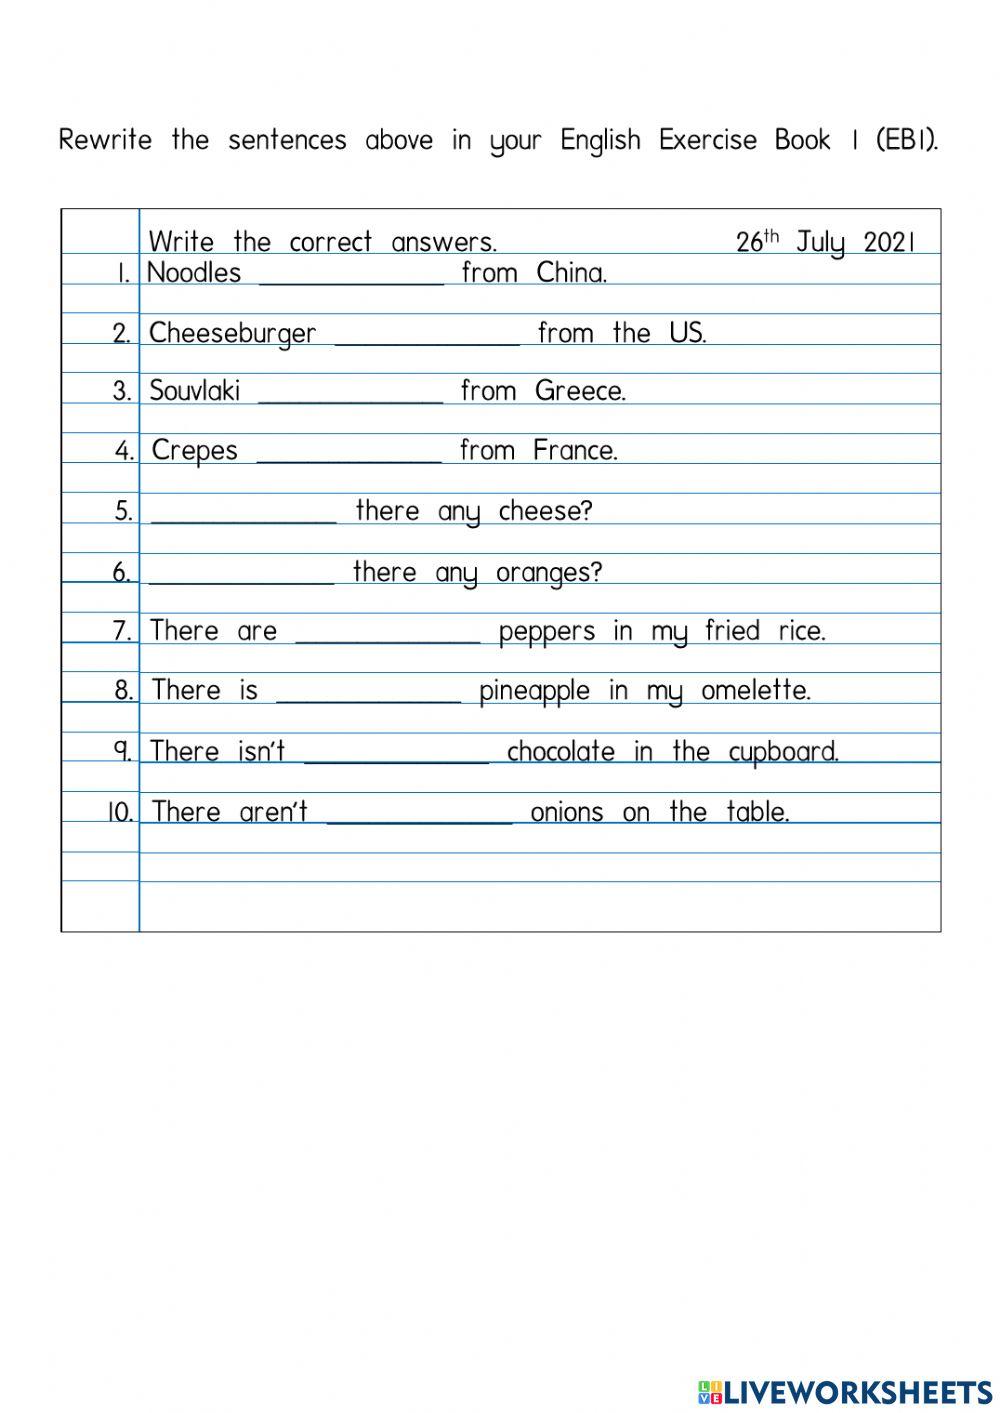 Rewrite the sentences above in your English Exercise Book 1 (EB1).
Write the correct answers. 26th July 2021
1. Noodles ____________ from China.
2. Cheeseburger ____________ from the US.
3. Souvlaki ____________ from Greece.
4. Crepes ____________ from France.
5. ____________ there any cheese?
6. ____________ there any oranges?
7. There are ____________ peppers in my fried rice.
8. There is ____________ pineapple in my omelette.
9. There isn't ____________ chocolate in the cupboard.
10. There aren't ____________ onions on the table.
LIVE LIVEWORKSHEETS